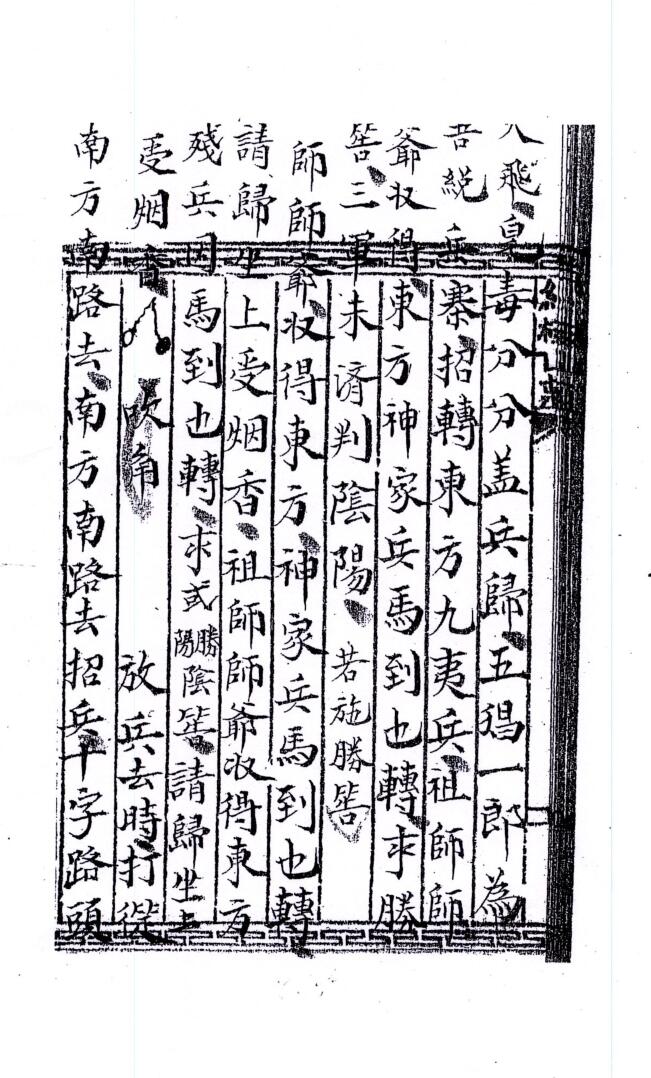 飛皇毒分分蓋兵歸五猖一郎為
吾總兵寨招轉東方九夷兵祖師師
爺収得東方神家兵馬到也轉求勝
筶三軍未濟判陰陽若施勝筶
師師爺収得東方神家兵馬到也轉
請歸坐上受烟香祖師師爺収得東方
殘兵因馬到也轉求或勝陽陰筶請歸坐上
受烟香 吹角 放兵去時打從
南方南路去南方南路去招兵十字路頭